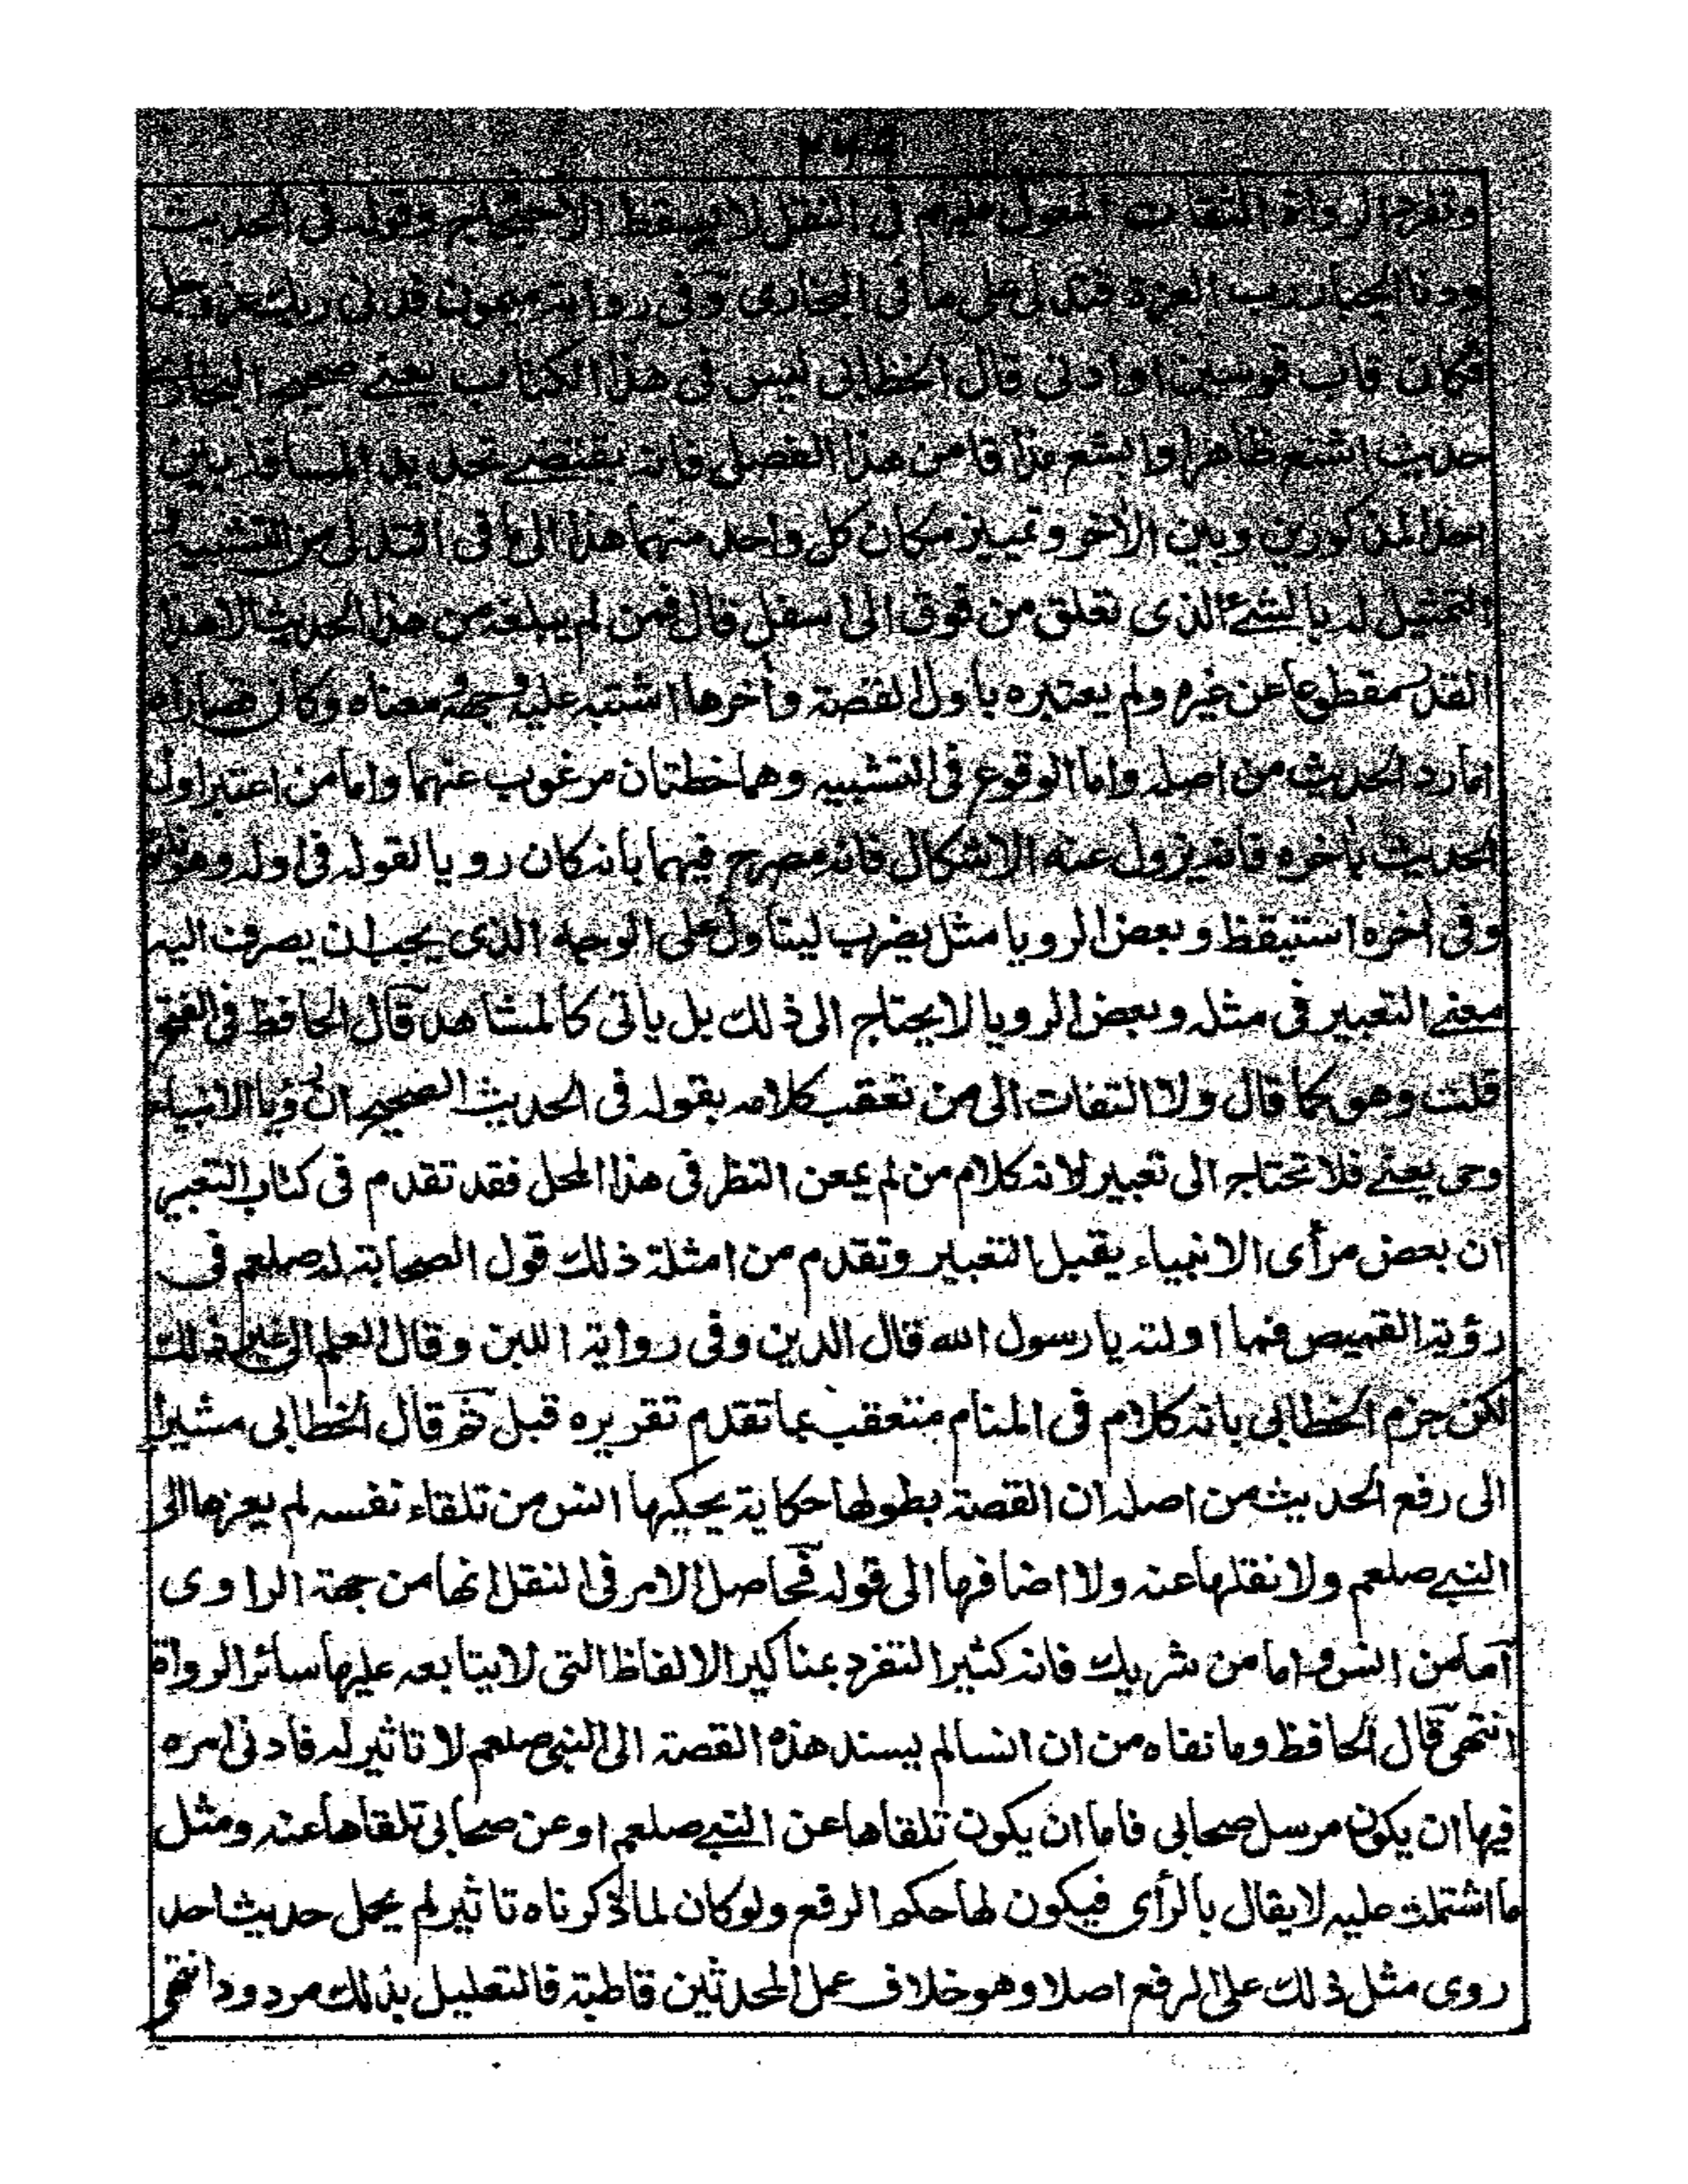 ٢٤٩
وتفرد الرواة الثقات المعول عليهم فى النقل لا يسقط الاحتجاج به وقوله فى الحديث
ودنا الجبار رب العزة فتدلى على ما فى البخارى وفى رواية ميمون فدنى ربك عز وجل
فكان قاب قوسين او ادنى قال الخطابى ليس فى هذا الكتاب يعنى صحيح البخارى
حديث اشنع ظاهرا و اشنع مذاقا من هذا الفصل فانه يقتضى تحديد المسافة بين
احد المذكورين وبين الأخر وتمييز مكان كل واحد منهما هذا الى ما فى التدلى من التشبيه و
التمثيل له بالشئ الذى تعلق من فوق الى اسفل قال فمن لم يبلغه من هذا الحديث الا هذا
القدر مقطوعا عن غيره ولم يعتبره بأول القصة وأخرها اشتبه عليه وجهه ومعناه وكان قصاراه
اما رد الحديث من اصله واما الوقوع فى التشبيه وهما خطتان مرغوب عنهما واما من اعتبر اول
الحديث بأخره فانه يزول عنه الاشكال فانه مصرح فيهما بانه كان رويا لقوله فى اوله وهو نائم
وفى أخره استيقظ وبعض الرويا مثل يضرب ليتاول على الوجه الذى يجب ان يصرف اليه
معنى التعبير فى مثله وبعض الرويا لا يحتاج الى ذلك بل يأتى كالمشاهد قال الحافظ فى الفتح
قلت وهو كما قال ولا التفات الى من تعقب كلامه بقوله فى الحديث الصحيح ان رؤيا الانبياء
وحى يعنى فلا تحتاج الى تعبير لانه كلام من لم يمعن النظر فى هذا المحل فقد تقدم فى كتاب التعبير
ان بعض مرأى الانبياء يقبل التعبير وتقدم من امثلة ذلك قول الصحابة له صلعم فى
رؤية القميص فما اولته يا رسول الله قال الدين وفى رواية اللبن وقال العلم الى غير ذلك
لكن جزم الخطابى بانه كلام فى المنام متعقب بما تقدم تقريره قبل ثم قال الخطابى مشيرا
الى رفع الحديث من اصله ان القصة بطولها حكاية يحكيها انس من تلقاء نفسه لم يعزها الى
النبى صلعم ولا نقلها عنه ولا اضافها الى قوله فحاصل الامر فى النقل انها من جهة الراوى
اما من انس و اما من شريك فانه كثير التفرد بمناكير الالفاظ التى لا يتابعه عليها سائر الرواة
انتهى قال الحافظ وما نفاه من ان انسا لم يسند هذه القصة الى النبى صلعم لا تاثير له فادنى امره
فيها ان يكون مرسل صحابى فاما ان يكون تلقاها عن النبى صلعم او عن صحابى تلقاها عنه ومثل
ما اشتملت عليه لا يقال بالرأى فيكون لها حكم الرفع ولو كان لما ذكرناه تاثير لم يحمل حديث احد
روى مثل ذلك على الرفع اصلا وهو خلاف عمل المحدثين قاطبة فالتعليل بذلك مردود انتهى